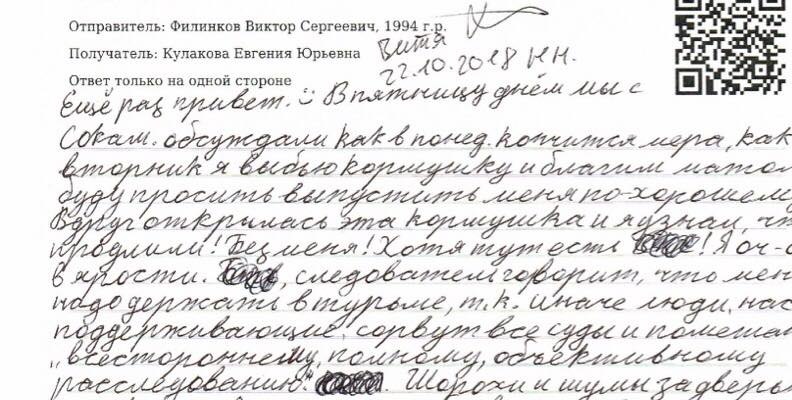 Отправитель: Филинков Виктор Сергеевич, 1994 г.р.
Получатель: Кулакова Евгения Юрьевна
Витя
22.10.2018 НН.
Ответ только на одной стороне
Ещё раз привет. Впятницу днём мы с
Сокам. обсуждали как в понед. кончится мера, как
вторник я выбью кормушку и благим матом
буду просить выпустить меня по-хорошем
Вдруг открылась эта кормушка и я узнал, чт
продлили! Без меня! Хотя тут есть ! Я оч-
в ярости. , следователь говорит, что мен
надо держать в тюрьме, т.к. иначе люди, нас
поддерживающие, сорвут все суды и помешаю
"всестороннему, полному, объективному
расследованию". . Шорохи и шумы за дверь